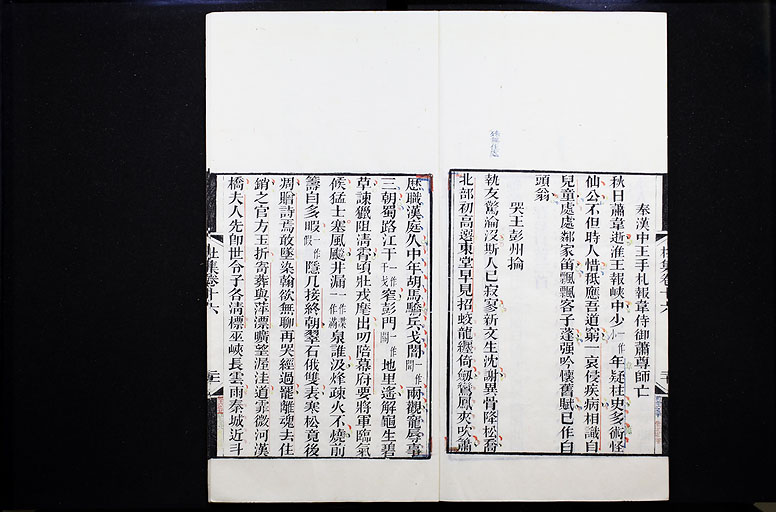 奉漢中王手札報韋侍御蕭尊師亡
秋日蕭韋逝淮王報峽中少一作年疑柱史多術怪
仙公不但時人惜秪應吾道窮一哀侵疾病相識自
兒童處處鄰家笛飄飄客子蓬強吟懷舊賦已作白
頭翁
哭王彭州掄
執友驚淪沒斯人已寂寥新文生沈謝異骨降松喬
北部初高選東堂早見招蛟龍纏倚劍鸞鳳夾吹簫
歷職漢庭久中年胡馬驕兵戈闇一作閒兩觀寵辱事
三朝蜀路江干一作干戈窄彭門一作關地里遙解龜生碧
草諫獵阻清霄頃壯戎麾出叨陪幕府要將軍臨氣
候猛士塞風飈井漏一作渫一作滿泉誰汲烽疎火不燒前
籌自多暇一作假隱几接終朝翠石俄雙表寒松竟後
凋贈詩焉敢墜染翰欲無聊再哭經過罷離魂去住
銷之官方玉折寄葬與萍漂曠望渥洼道霏微河漢
橋夫人先即世令子各清標巫峽長雲雨秦城近斗
杜集卷十六